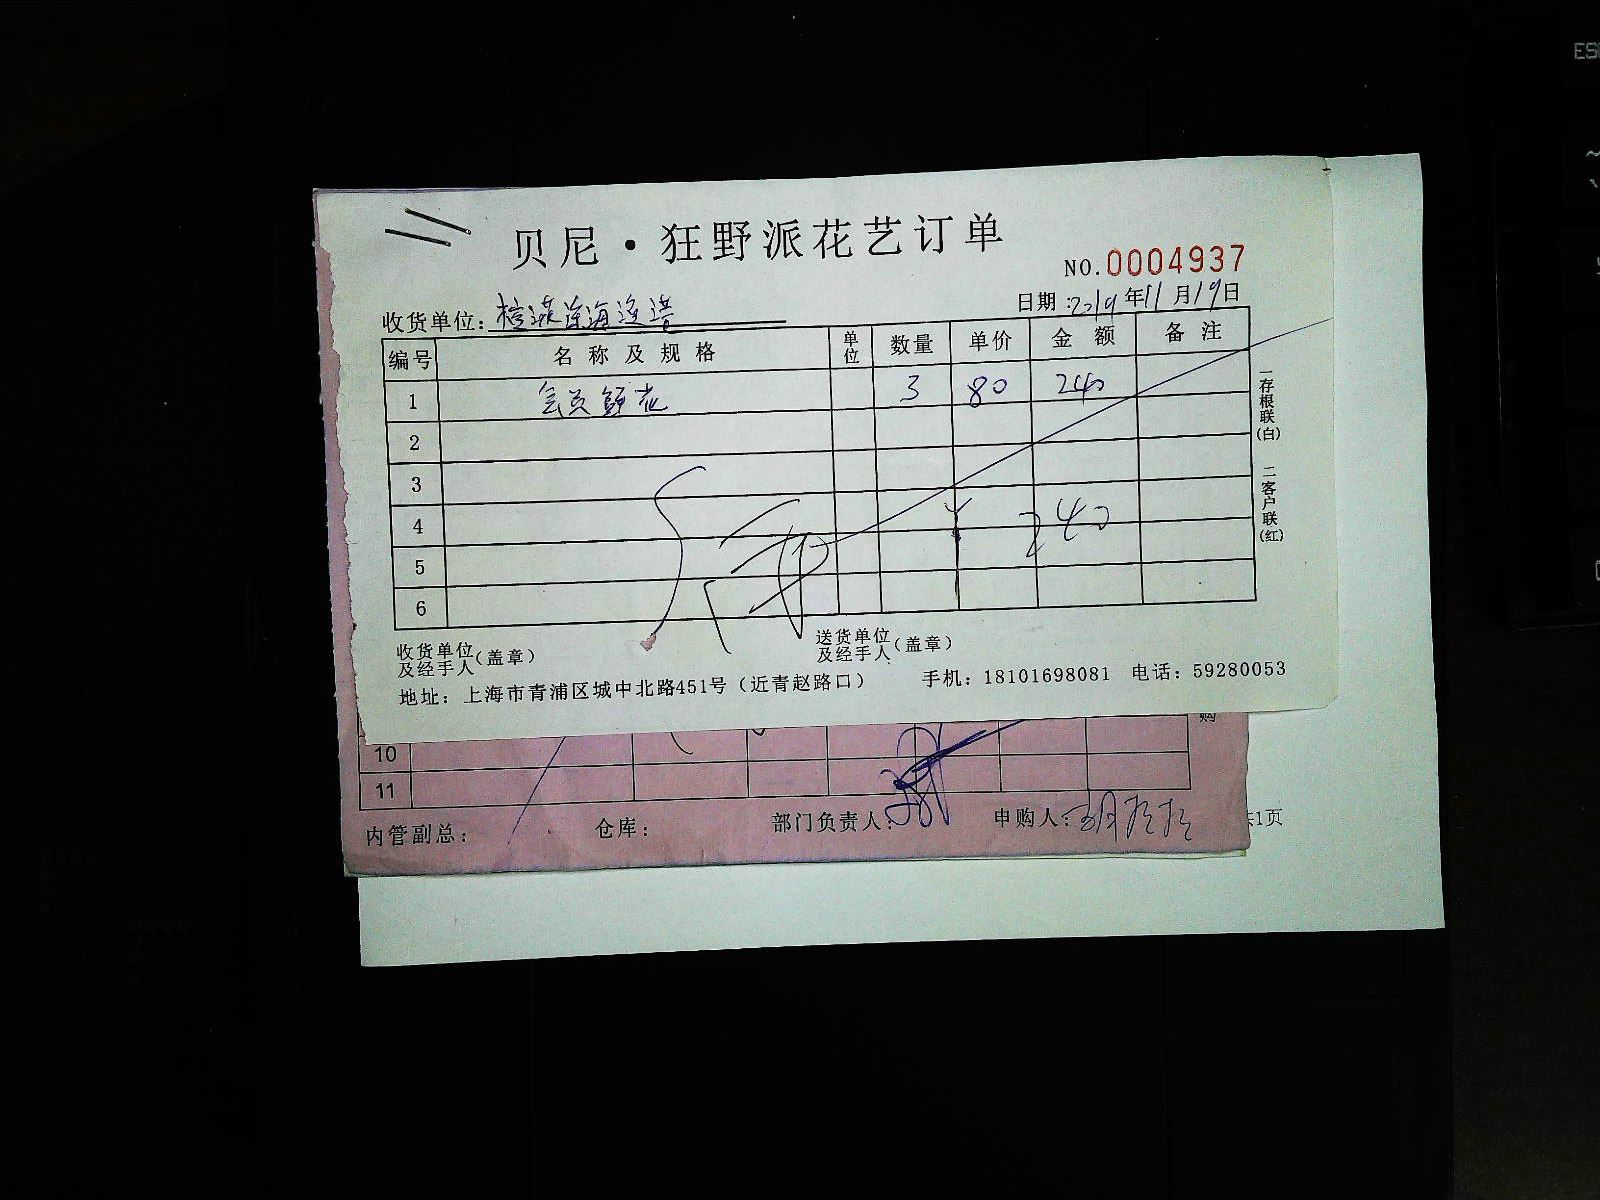 贝尼·狂野派花艺订单
NO.0004937
收货单位:
日期:2019年11月19日
编号 名称及规格 单位 数量 单价 金额 备注
1 会员鲜花 3 80 240
2
3
4 ¥ 240
5
6
一存根联(白) 二客户联(红)
收货单位及经手人(盖章) 送货单位及经手人(盖章)
地址:上海市青浦区城中北路451号(近青赵路口) 手机:18101698081 电话:59280053
购
10
11
内管副总: 仓库: 部门负责人: 申购人:
共1页
ESC